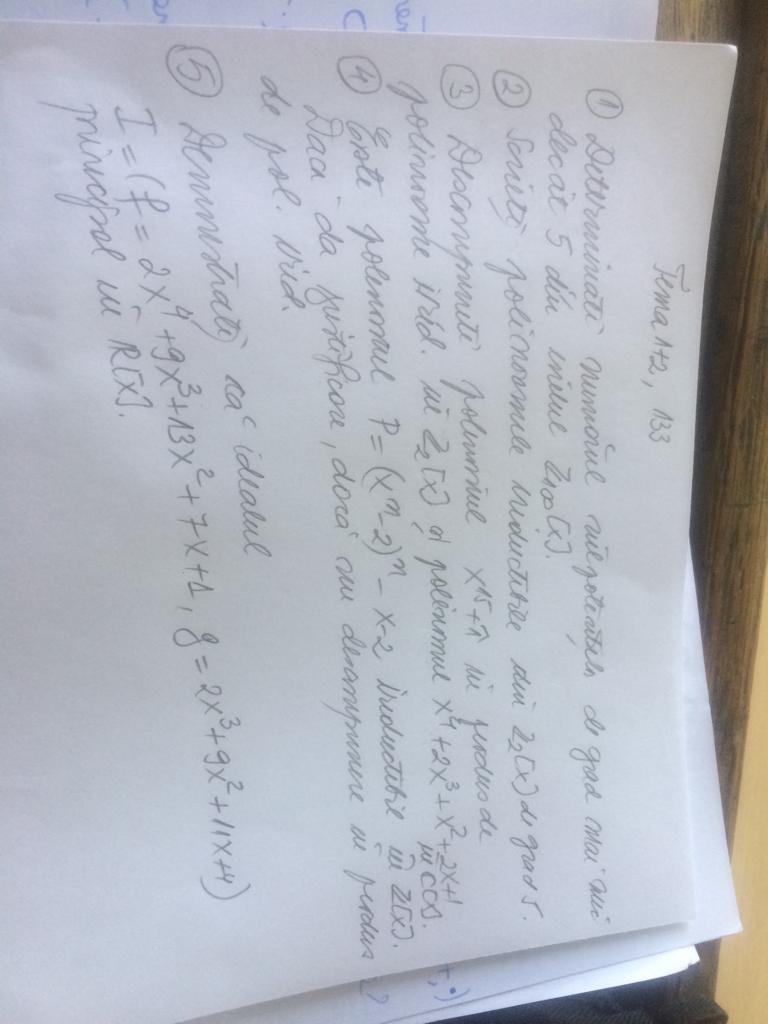 Tema 1+2, 133
① Determinați numărul nilpotenților de grad mai mic
decât 5 din inelul Z₁₀₀[x].
② Scrieți polinoamele ireductibile din Z₂[x] de grad 5.
③ Descompuneți polinomul x¹⁵+1 in produs de
polinoame ired. in Z₂[x] și polinomul x⁴+2x³+x²+2x+1
in C[x].
④ Este polinomul P=(xⁿ-2)ⁿ-x-2 ireductibil in Z[x].
Dacă da justificare, dacă nu descompunere in produs
de pol. ired.
⑤ Demonstrați că idealul
I=(f=2x⁴+9x³+13x²+7x+1, g=2x³+9x²+11x+4)
principal in R[x].